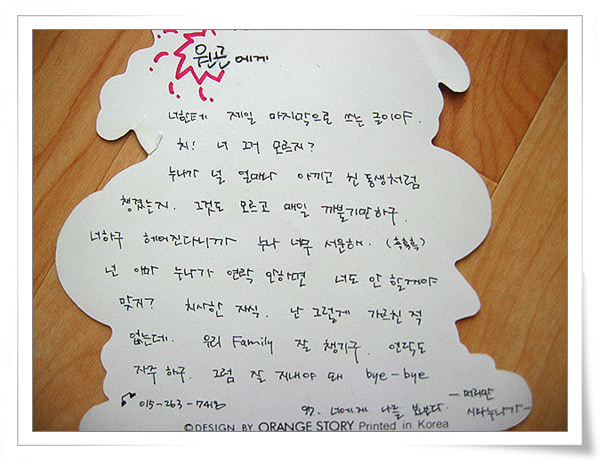 원근에게
너한테 제일 마지막으로 쓰는 글이야.
치! 너 그거 모르지?
누나가 널 얼마나 아끼고 친동생처럼
챙겼는지. 그것도 모르고 매일 까불기만하구.
너하구 헤어진다니까 누나 너무 서운해. (흑흑흑)
넌 아마 누나가 연락 안하면 너도 안 할거야
맞지? 치사한 자식. 난 그렇게 가르친 적
없는데. 우리 Family 잘 챙기구. 연락도
자주 하구. 그럼 잘 지내야 돼 bye-bye
015-263-7418
97. 너에게 나를 보낸다. - 때려만
시다누나가 -
©DESIGN BY ORANGE STORY Printed in Korea